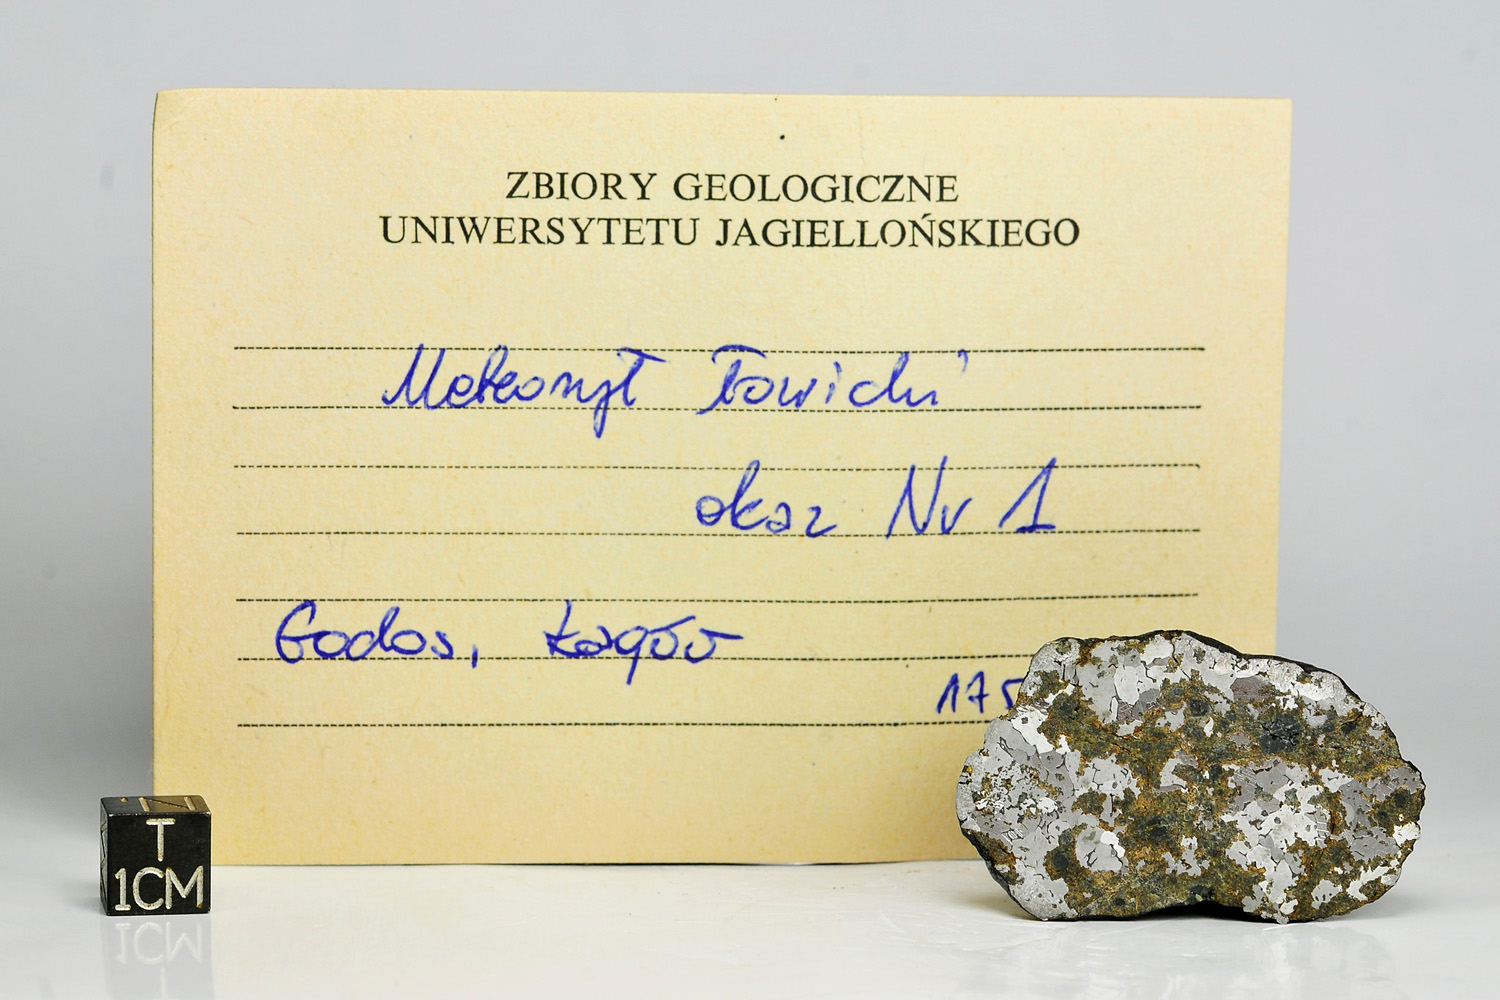 ZBIORY GEOLOGICZNE
UNIWERSYTETU JAGIELLOŃSKIEGO
Meteoryt Łowicki
okaz Nr 1
Godos, Łagów
175
T
1CM